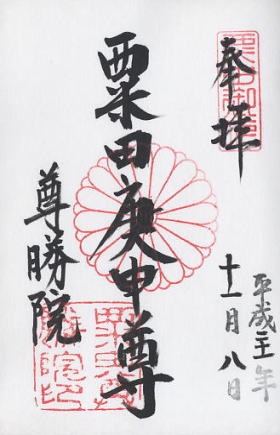 奉拝
平成二十一年
十一月八日
粟田庚申尊
尊勝院